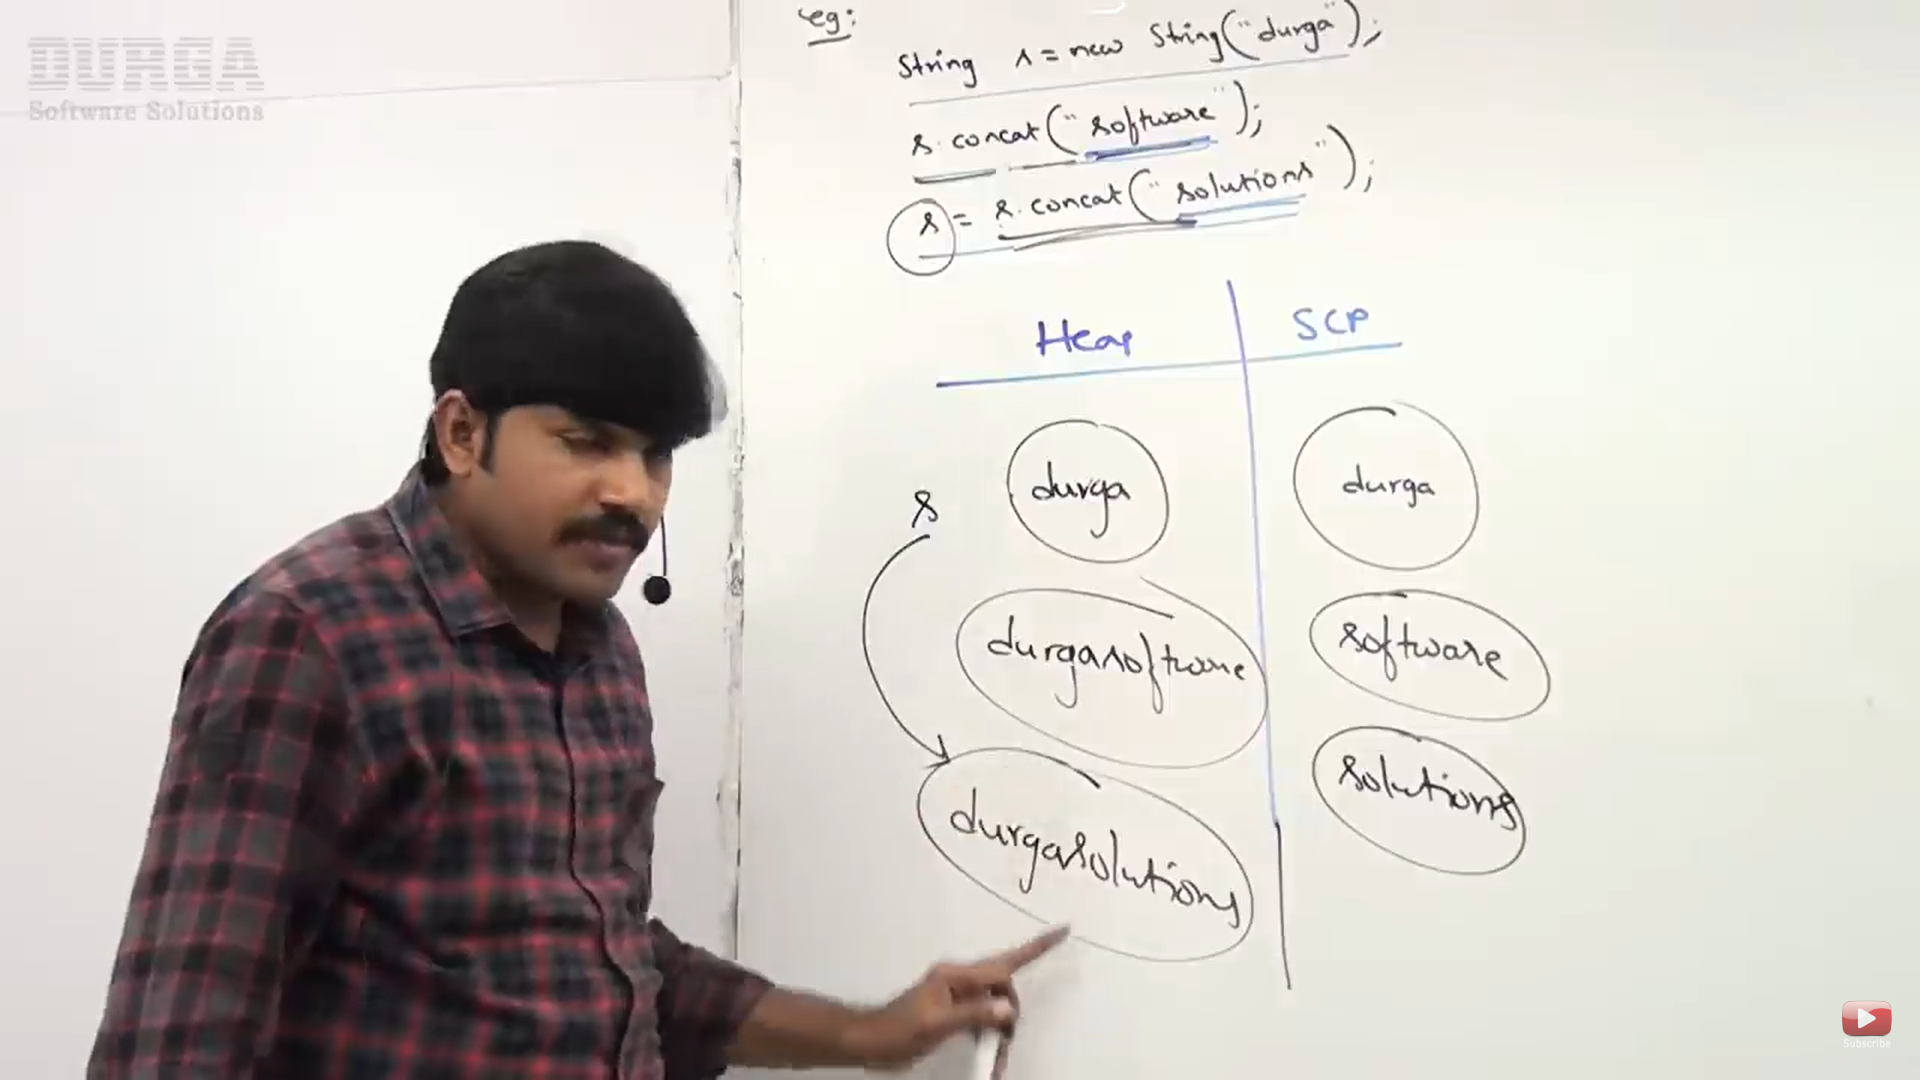 DURGA
Software Solutions
eg:
String s = new String("durga");
s.concat("software");
s = s.concat("solutions");
Heap SCP
s durga durga
durgasoftware software
durgasolutions solutions
Subscribe